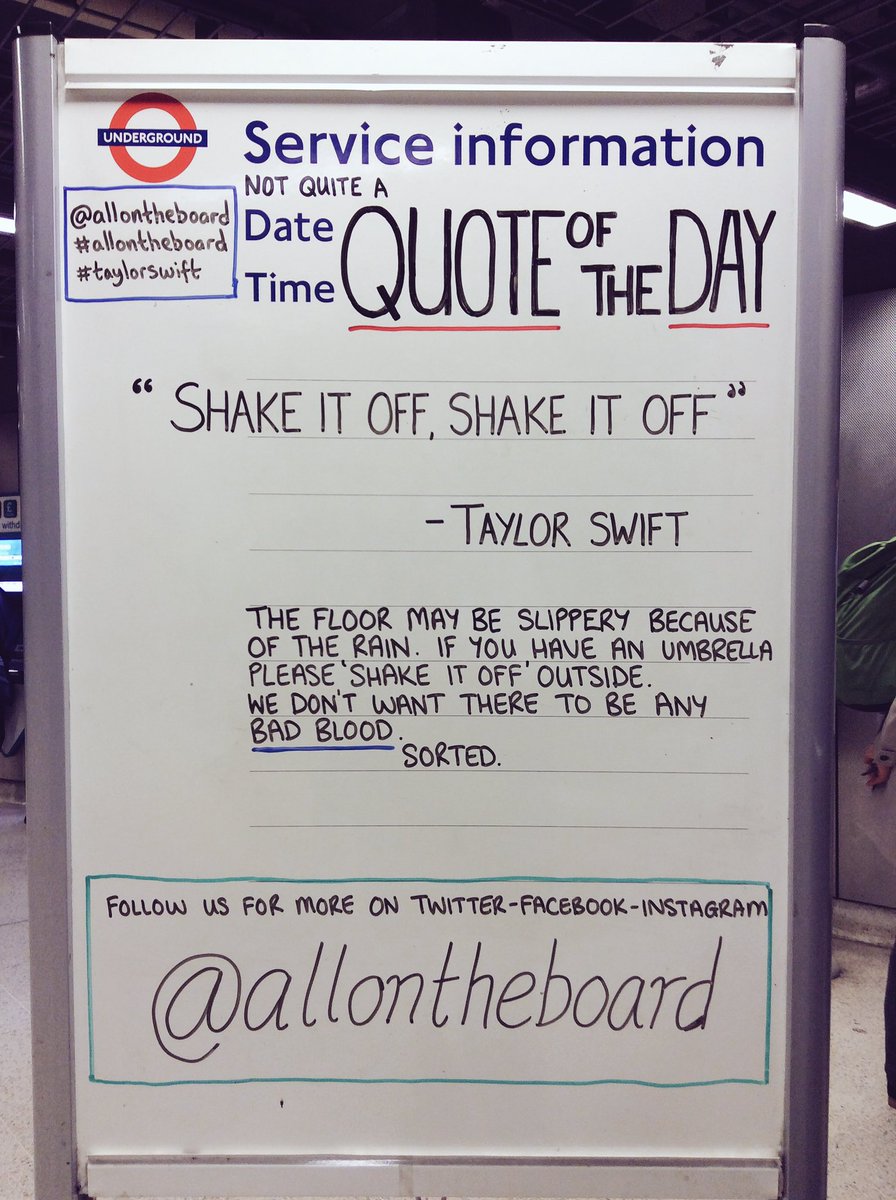 UNDERGROUND
Service information
@allontheboard
#allontheboard
#taylorswift
NOT QUITE A
Date
Time
QUOTE OF THE DAY
“ SHAKE IT OFF, SHAKE IT OFF ”
- TAYLOR SWIFT
THE FLOOR MAY BE SLIPPERY BECAUSE
OF THE RAIN. IF YOU HAVE AN UMBRELLA
PLEASE 'SHAKE IT OFF' OUTSIDE.
WE DON'T WANT THERE TO BE ANY
BAD BLOOD.
SORTED.
FOLLOW US FOR MORE ON TWITTER-FACEBOOK-INSTAGRAM
@allontheboard